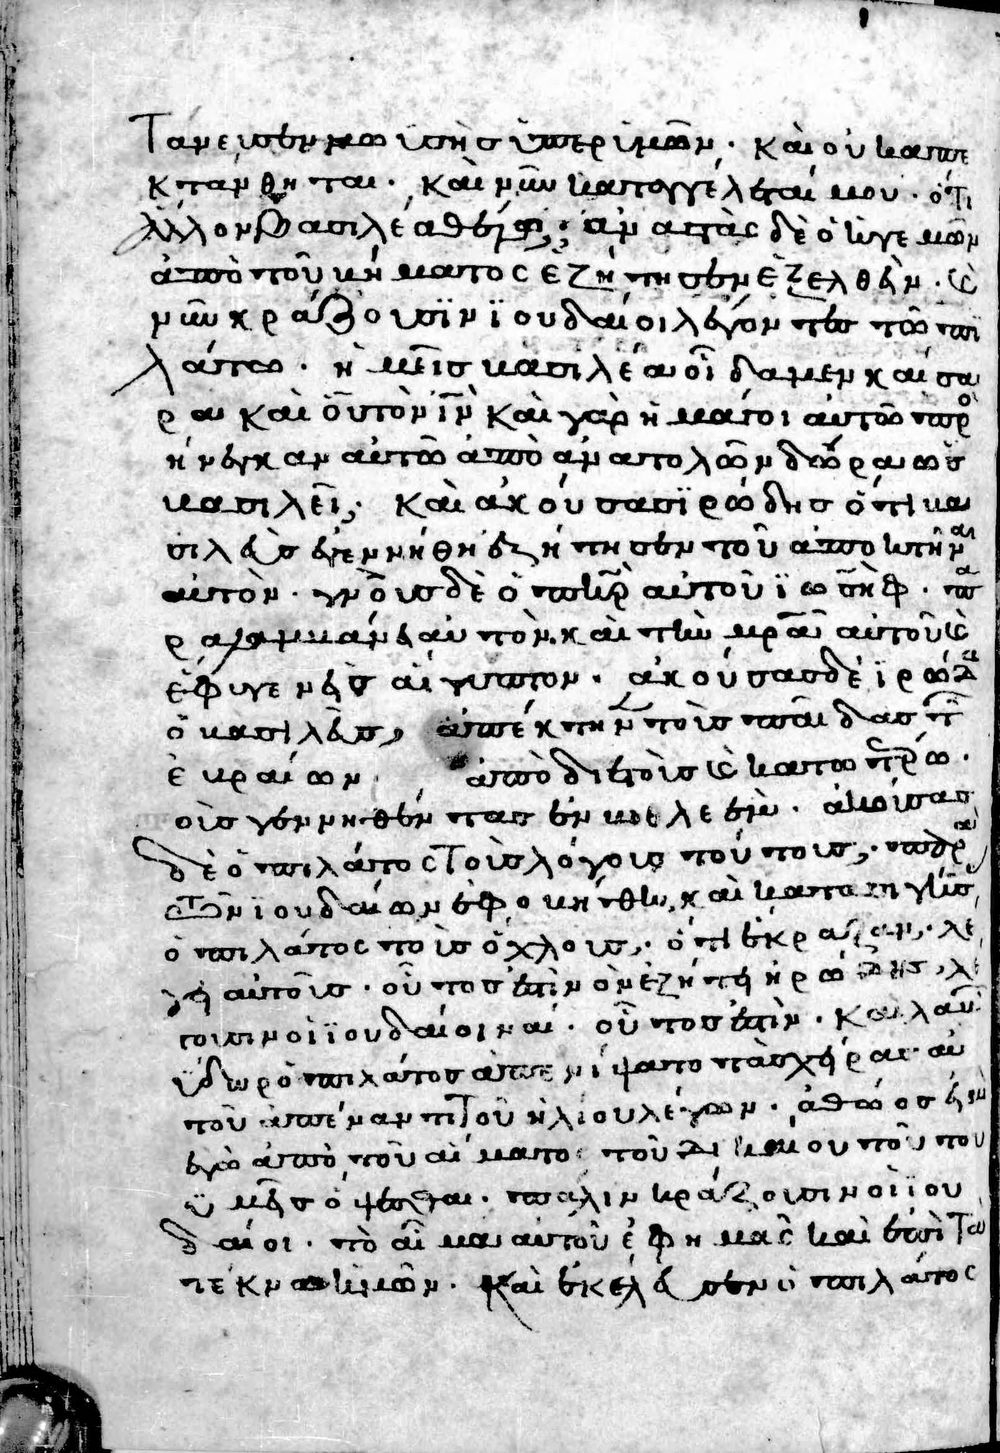 Τανεισεν μωϋσὴς ὑπερ ὑμῶν · καὶ οὐ κατε
κτάνθηται · καὶ νῦν καταγγέλεταί μου · ὅτι
ἄλλον βασιλέα θέλω · ἀναστὰς δὲ ὁ ἡγεμὼν
ἀπὸ τοῦ βήματος ἐζήτησεν ἐξελθεῖν · καὶ
νῦν κράζουσϊν ϊουδαίοι λέγοντες τῶ πϊ
λάτω · ἡμεῖς βασιλέα οἴδαμεν καίσα
ρα καὶ οὐ τὸν ἰν καὶ γὰρ ἡ μάγοι αὐτῶ προ
ήνεγκαν αὐτῶ ἀπὸ ἀνατολῶν δῶρα ὡς
βασιλεῖ · καὶ ἀκούσας ϊρώδης ὅτι βα
σιλεὺς ἐγεννήθη ἐζήτησεν τοῦ ἀποκτῆναι
αὐτὸν · γνοὺς δὲ ὁ πηρ αὐτοῦ ϊωσὴφ · πα
ραλαμβάνει αὐτὸν καὶ τὴν μραν αὐτοῦ καὶ
ἔφυγεν εἰς αἴγυπτον · ἀκούσας δὲ ϊρώδης
ὁ βασιλεὺς, ἀπέκτηνεν τοὺς παῖδας τῶν
ἑβραίων ἀπὸ διετοῦς καὶ κατωτέρω ·
οὓς γεννηθέντας ἐν βηθλεεὶμ · ἀκούσας
δὲ ὁ πιλάτος τοὺς λόγους τούτους · παρὰ
τῶν ϊουδαίων ἐφοβήθη, καὶ κατασιγήσας
ὁ πιλάτος τοὺς ὄχλους · ὅτι ἔκραζαν · λέ
γει αὐτοῖς · οὗτος ἐστὶν ὃν ἐζήτη ἡρώδης, λέ
γουσιν οἱ ϊουδαίοι ναί · οὗτος ἐστὶν · καὶ λαβὼν
ὕδωρ ὁ πιλάτος ἀπενίψατο τὰς χεῖρας αὐ
τοῦ ἀπέναντι τοῦ ἡλίου λέγων · ἀθῶος εἰμὶ
ἐγὼ ἀπὸ τοῦ αἵματος τοῦ δικαίου τούτου
ὑμεῖς ὄψεσθαι · πάλιν κράζουσιν οἱ ϊου
δαίοι · τὸ αἷμα αὐτοῦ ἐφ ημᾶς καὶ ἐπὶ τὰ
τέκνα ἡμῶν · καὶ ἐκέλευσεν ὁ πιλάτος